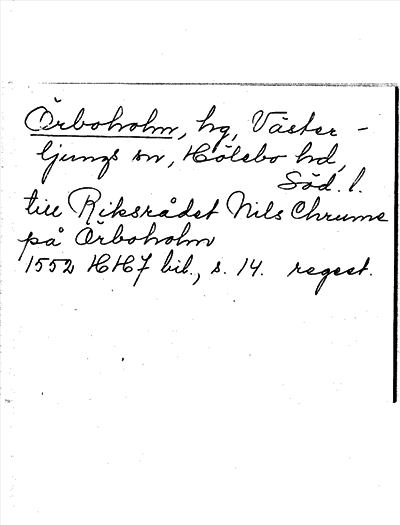 Örboholm, hg, Väster-
ljungs sn, Hölebo hd,
Söd. l.
till Riksrådet Nils Chrums
på Örboholm
1552 HH7 bil., s. 14. regest.